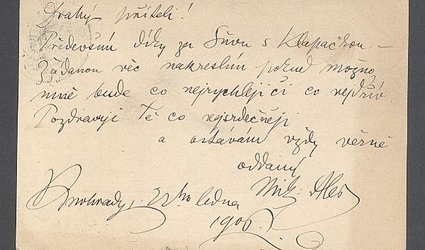 Drahý příteli!
Především díky za Šívu s Klapačkou –
Žádanou věc nakreslím pokud možno
mně bude co nejrychleji či co nejdřív
Pozdravuji Tě co nejsrdečněji
a ostávám vždy věrně
oddaný
Mik. Aleš
Vinohrady, 22ho ledna
1906